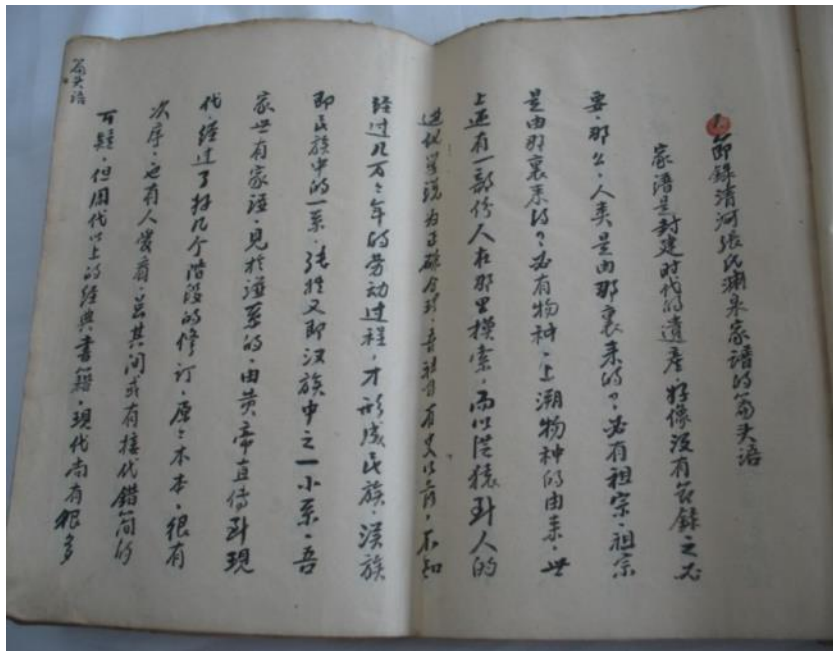 节録清河張氏渊泉家谱的篇头语
家谱是封建时代的遗産，好像没有节錄之必
要，那么，人类是由那裏来的？必有祖宗，祖宗
是由那裏来的？必有物种，上溯物种的由来，世
上还有一部份人在那里摸索，而以从猿到人的
进化学说为正确合理，吾祖自有史以前，不知
经过几万万年的劳动过程，才形成民族，漢族
即民族中的一系，張姓又即汉族中之一小系，吾
家世有家谱，見於谱系的，由黄帝直传到現
代，经过了好几个階段的修订，原原本本，很有
次序，也有人爱看，虽其间或有接代錯简的
可疑，但周代以上的经典書籍，現代尚有很多
篇头语